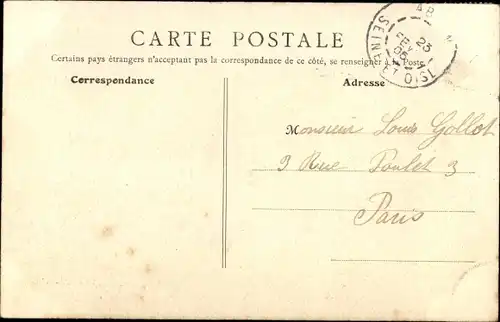 CARTE POSTALE
Certains pays étrangers n'acceptant pas la correspondance de ce côté, se renseigner à la Poste
Correspondance
Adresse
SEINE ET OISE
23
Monsieur Louis Gollot
3 Rue Poulet 3
Paris